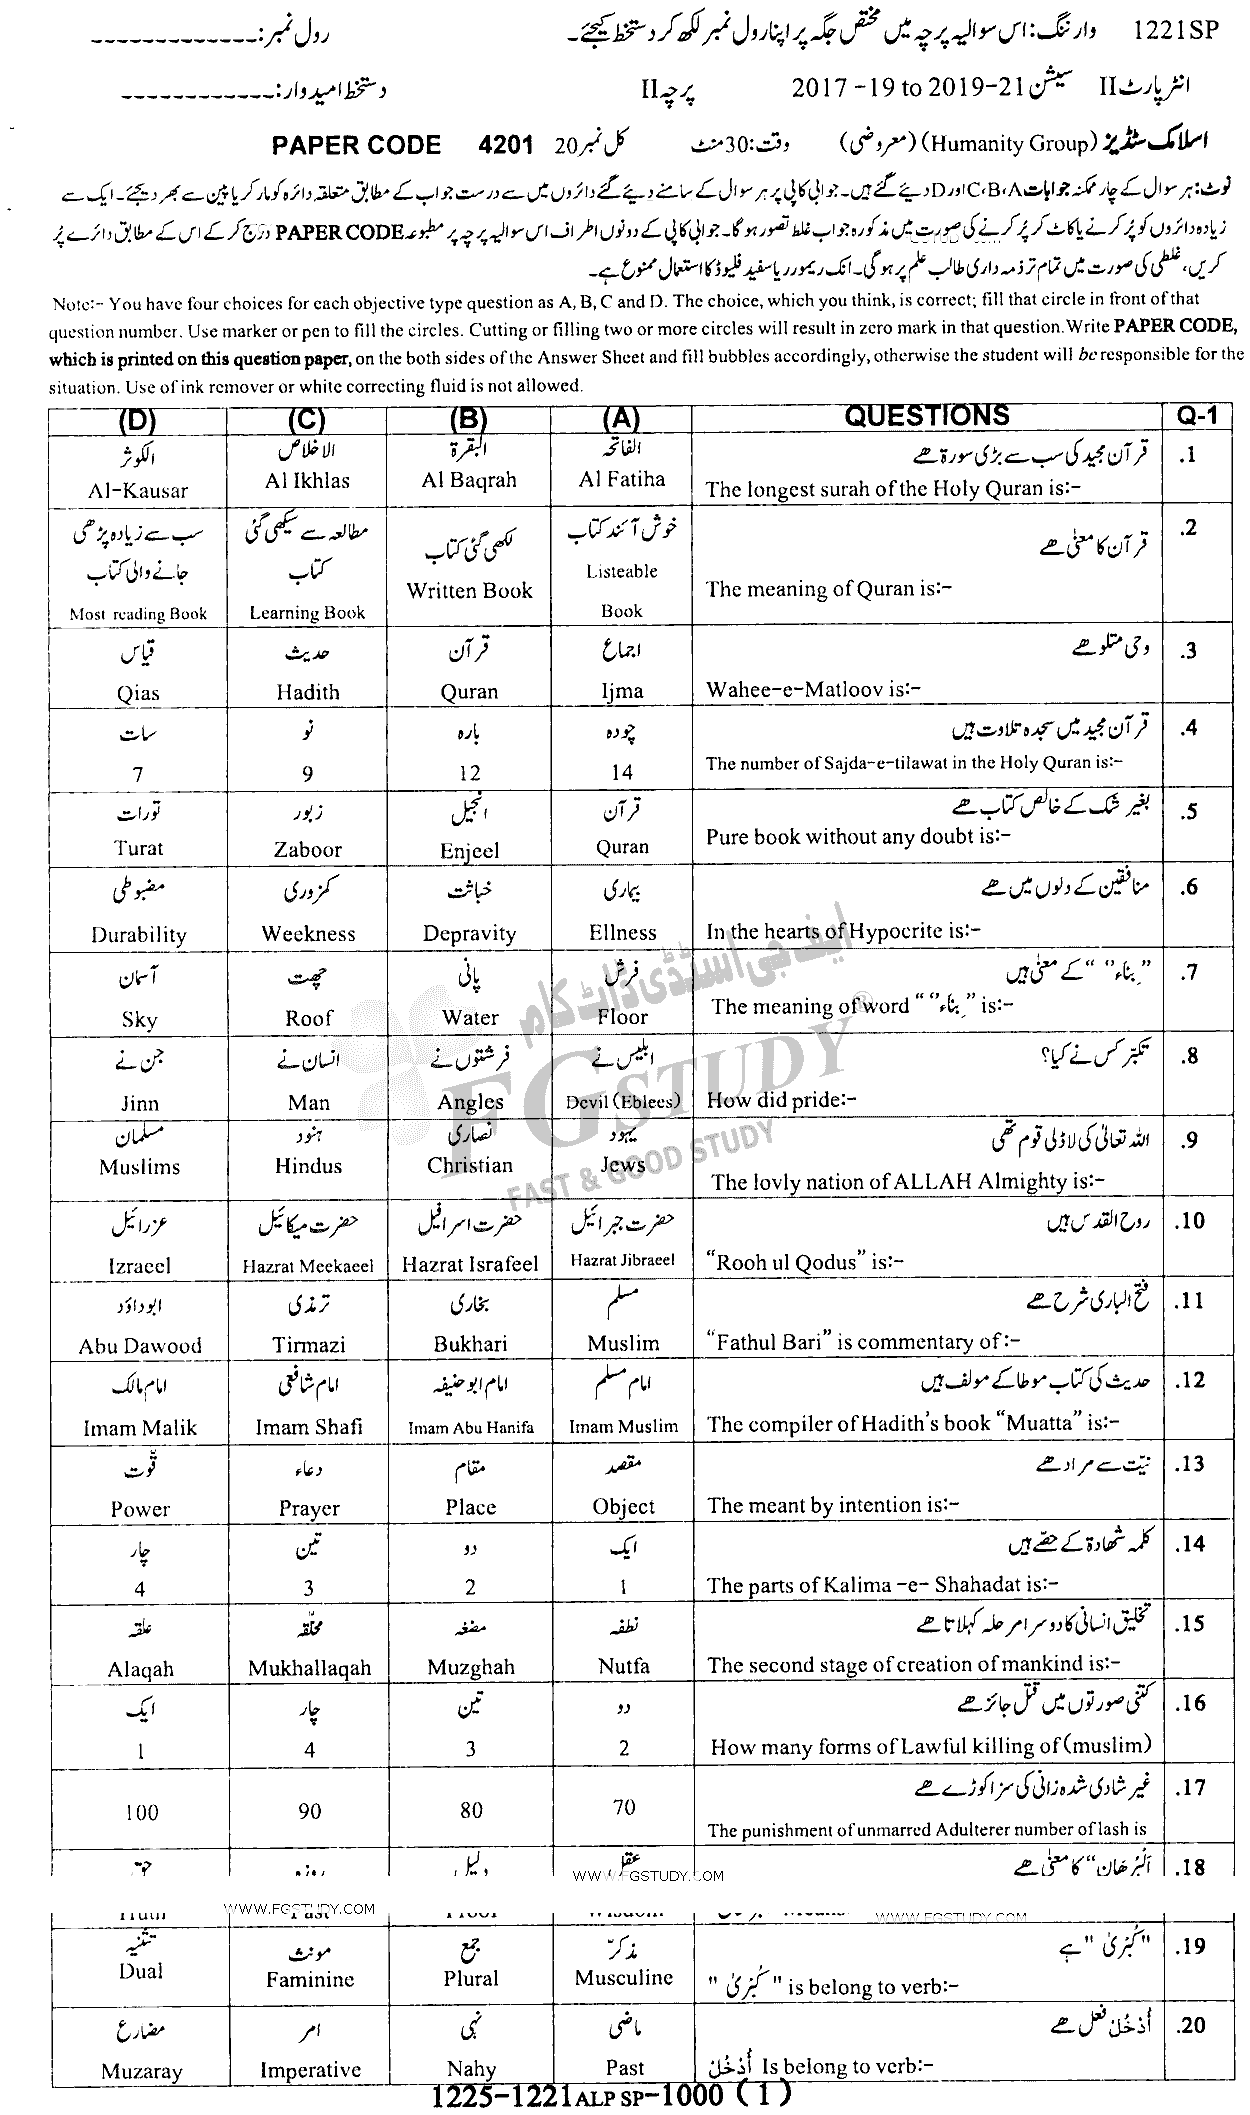 1221SP وارننگ: اس سوالیہ پرچہ میں مختص جگہ پر اپنا رول نمبر لکھ کر دستخط کیجئے۔ رول نمبر: -------------
انٹر پارٹ II سیشن 2017-19 to 2019-21 پرچہ II دستخط امیدوار: ------------
اسلامک سٹڈیز (Humanity Group) (معروضی) وقت: 30 منٹ کل نمبر 20 PAPER CODE 4201
نوٹ: ہر سوال کے چار ممکنہ جوابات A،B،C اور D دیئے گئے ہیں۔ جوابی کاپی پر ہر سوال کے سامنے دیئے گئے دائروں میں سے درست جواب کے مطابق متعلقہ دائرہ کو مارکر یا پین سے بھر دیجئے۔ ایک سے
زیادہ دائروں کو پُر کرنے یا کاٹ کر پُر کرنے کی صورت میں مذکورہ جواب غلط تصور ہو گا۔ جوابی کاپی کے دونوں اطراف اس سوالیہ پرچہ پر مطبوعہ PAPER CODE درج کر کے اس کے مطابق دائرے پُر
کریں، غلطی کی صورت میں تمام تر ذمہ داری طالب علم پر ہو گی۔ انک ریمور ریا سفید فلیوڈ کا استعمال ممنوع ہے۔
Note:- You have four choices for each objective type question as A, B, C and D. The choice, which you think, is correct; fill that circle in front of that
question number. Use marker or pen to fill the circles. Cutting or filling two or more circles will result in zero mark in that question. Write PAPER CODE,
which is printed on this question paper, on the both sides of the Answer Sheet and fill bubbles accordingly, otherwise the student will be responsible for the
situation. Use of ink remover or white correcting fluid is not allowed.
(D) (C) (B) (A) QUESTIONS Q-1
الکوثر الاخلاص البقرۃ الفاتحہ قرآن مجید کی سب سے بڑی سورۃ ھے .1
Al-Kausar Al Ikhlas Al Baqrah Al Fatiha The longest surah of the Holy Quran is:-
سب سے زیادہ پڑھی مطالعہ سے سیکھی گئی لکھی گئی کتاب خوش آئند کتاب قرآن کا معنیٰ ھے .2
جانے والی کتاب کتاب Written Book Listeable The meaning of Quran is:-
Most reading Book Learning Book Book
قیاس حدیث قرآن اجماع وحی متلو ھے .3
Qias Hadith Quran Ijma Wahee-e-Matloov is:-
سات نو بارہ چودہ قرآن مجید میں سجدہ تلاوت ہیں .4
7 9 12 14 The number of Sajda-e-tilawat in the Holy Quran is:-
تورات زبور انجیل قرآن بغیر شک کے خالص کتاب ھے .5
Turat Zaboor Enjeel Quran Pure book without any doubt is:-
مضبوطی کمزوری خباثت بیماری منافقین کے دلوں میں ھے .6
Durability Weekness Depravity Ellness In the hearts of Hypocrite is:-
آسمان چھت پانی فرش "بِناء" کے معنیٰ ہیں .7
Sky Roof Water Floor The meaning of word "بِناء" is:-
جن نے انسان نے فرشتوں نے ابلیس نے تکبّر کس نے کیا؟ .8
Jinn Man Angles Devil (Eblees) How did pride:-
مسلمان ہنود نصاریٰ یہود اللہ تعالیٰ کی لاڈلی قوم تھی .9
Muslims Hindus Christian Jews The lovly nation of ALLAH Almighty is:-
عزرائیل حضرت میکائیل حضرت اسرافیل حضرت جبرائیل روح القدس ہیں .10
Izraeel Hazrat Meekaeel Hazrat Israfeel Hazrat Jibraeel "Rooh ul Qodus" is:-
ابوداؤد ترمذی بخاری مسلم فتح الباری شرح ھے .11
Abu Dawood Tirmazi Bukhari Muslim "Fathul Bari" is commentary of:-
امام مالک امام شافعی امام ابو حنیفہ امام مسلم حدیث کی کتاب موطا کے مولف ہیں .12
Imam Malik Imam Shafi Imam Abu Hanifa Imam Muslim The compiler of Hadith's book "Muatta" is:-
قوّت دعاء مقام مقصد نیّت سے مراد ھے .13
Power Prayer Place Object The meant by intention is:-
چار تین دو ایک کلمہ شھادۃ کے حصّے ہیں .14
4 3 2 1 The parts of Kalima -e- Shahadat is:-
علقہ مخلّقہ مضغہ نطفہ تخلیق انسانی کا دوسرا مرحلہ کہلاتا ھے .15
Alaqah Mukhallaqah Muzghah Nutfa The second stage of creation of mankind is:-
ایک چار تین دو کتنی صورتوں میں قتل جائز ھے .16
1 4 3 2 How many forms of Lawful killing of (muslim)
غیر شادی شدہ زانی کی سزا کوڑے ھے .17
100 90 80 70 The punishment of unmarred Adulterer number of lash is
حق روزہ دلیل عقل اَلبُرھان" کا معنٰی ھے .18
WWW.FGSTUDY.COM
WWW.FGSTUDY.COM WWW.FGSTUDY.COM
Truth Fast Proof Wisdom
تثنیہ مونث جمع مذکرّ "کُبْریٰ" ہے .19
Dual Faminine Plural Musculine "کُبْریٰ" is belong to verb:-
مضارع امر نہی ماضی اُدْخُلْ فعل ھے .20
Muzaray Imperative Nahy Past اُدْخُلْ Is belong to verb:-
1225-1221ALP SP-1000 (1)
ایف جی اسٹڈی ڈاٹ کام
FGSTUDY ®
FAST & GOOD STUDY